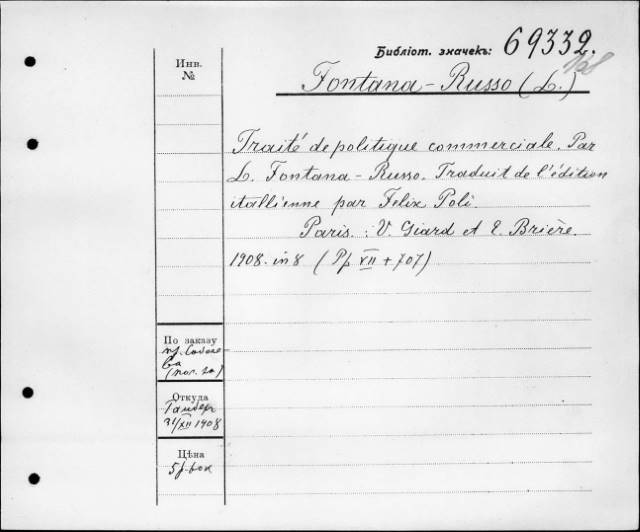 Библіот. значекъ: 69332.
Инв.
№
Fontana-Russo (L.)
Traité de politique commerciale. Par
L. Fontana-Russo. Traduit de l'édition
itallienne par Felix Poli.
Paris. : V. Giard et E. Brière.
1908. in 8 (Pp XII + 707)
По заказу
Откуда
21/XII 1908
Цѣна